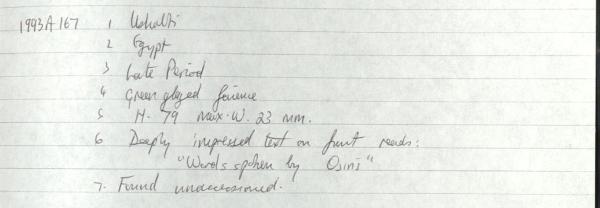 1993A167 1 Ushabti
2 Egypt
3 Late Period
4 Green glazed faience
5 H. 79 max. W. 23 mm.
6 Deeply impressed text on front reads:
"Words spoken by Osiris"
7. Found unaccessioned.